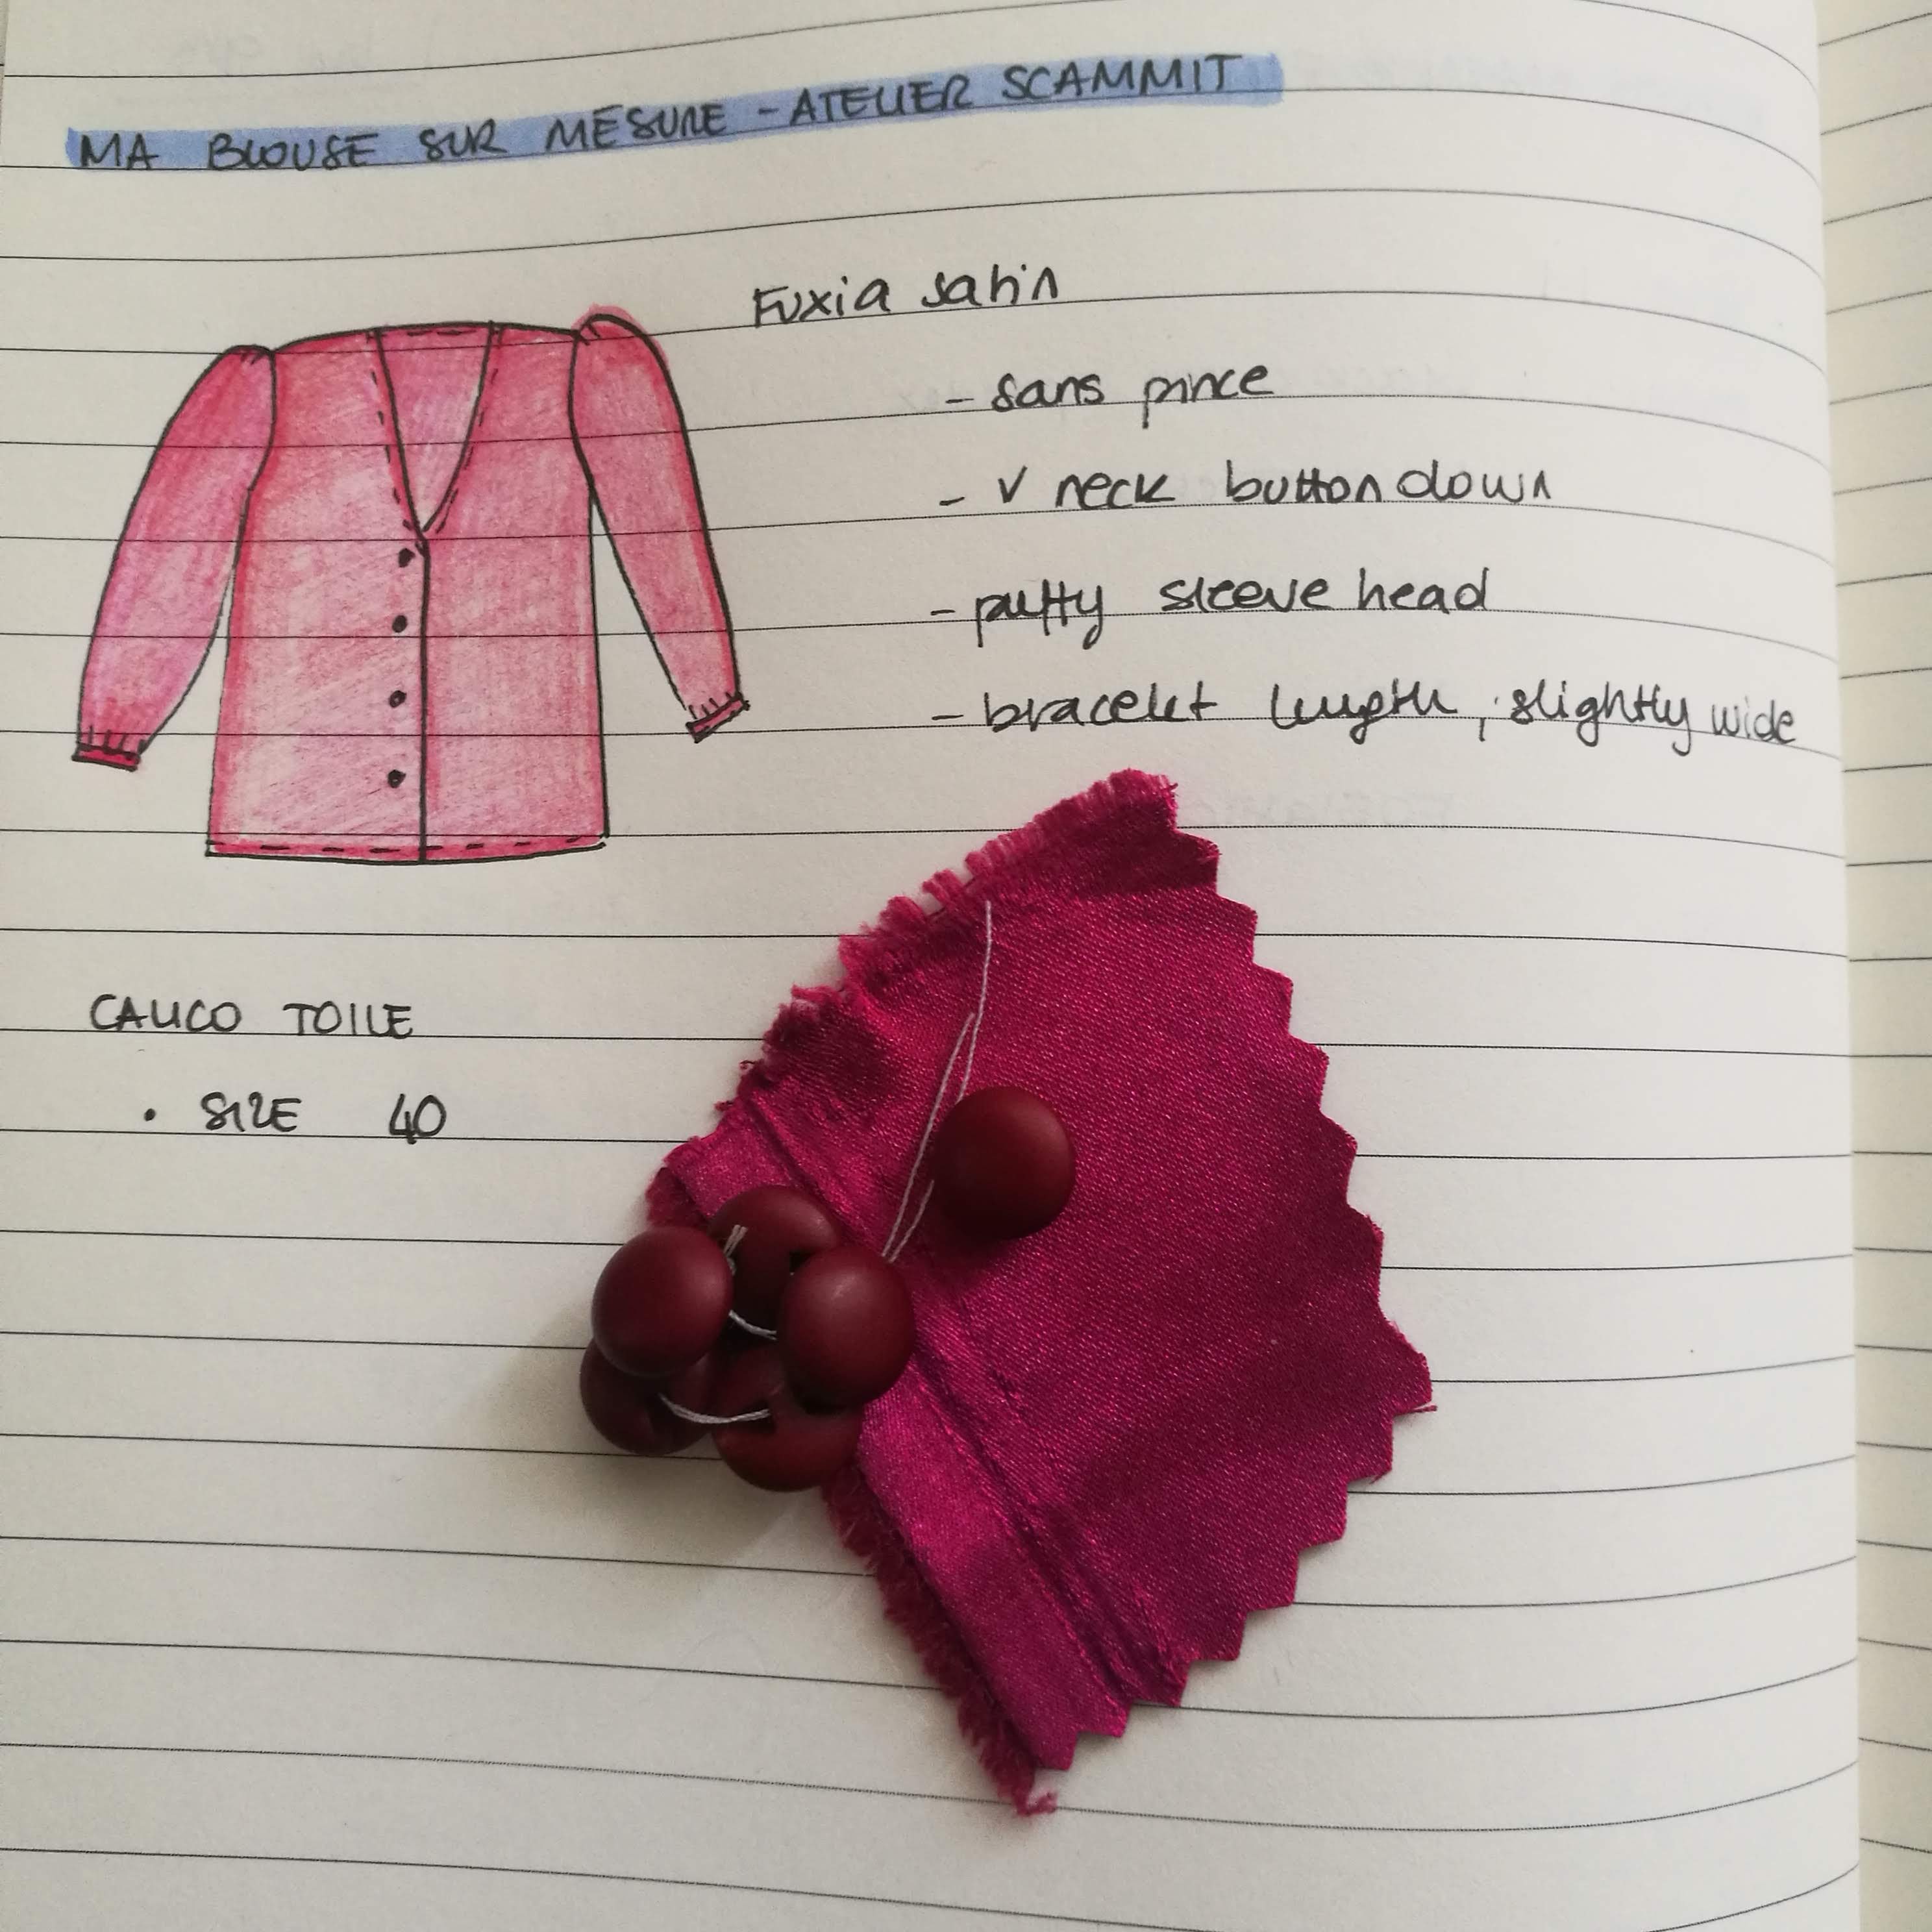 MA BLOUSE SUR MESURE - ATELIER SCAMMIT
Fuxia satin
- sans pince
- V neck button down
- puffy sleeve head
- bracelet length, slightly wide
CALICO TOILE
• SIZE 40